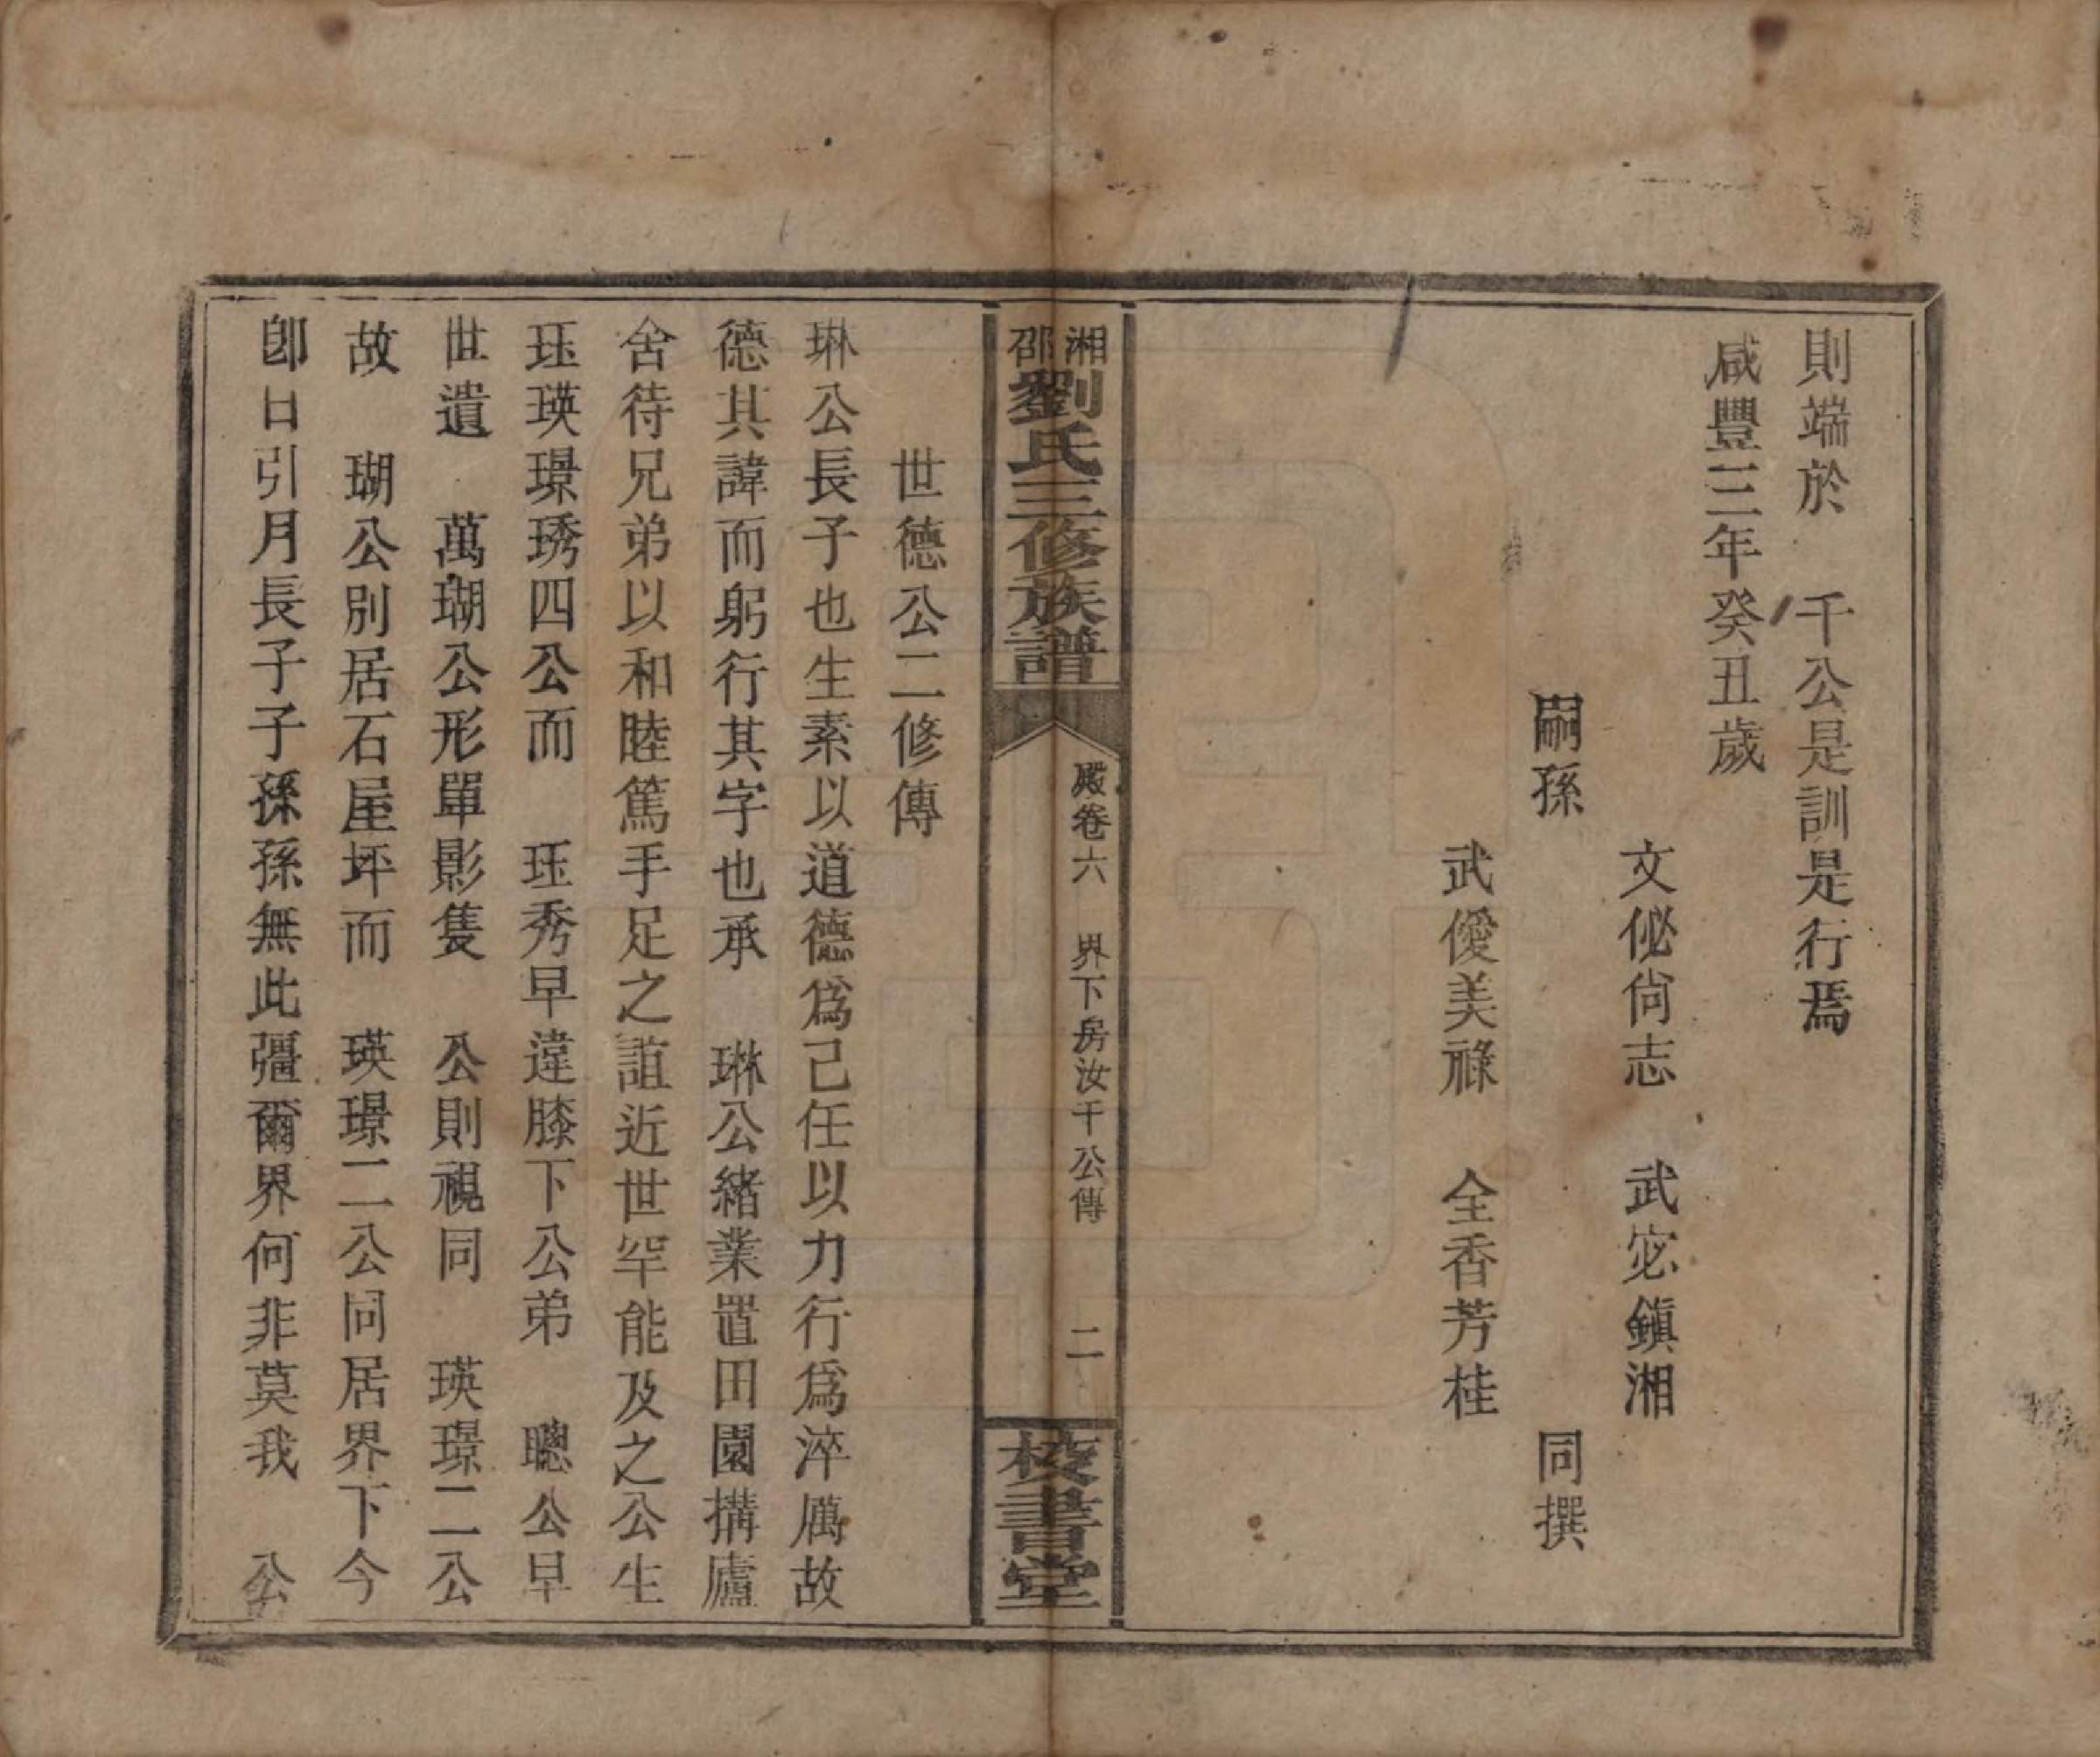 則端於　千公是訓是行焉
咸豐三年癸丑歲
文佖尙志　武宓鎮湘
嗣孫　同撰
武優美祿　全香芳桂
湘邵劉氏三修族譜
殿卷六　界下房汝千公傳　二
校書堂
世德公二修傳
琳公長子也生素以道德爲己任以力行爲淬厲故
德其諱而躬行其字也承　琳公緒業置田園搆廬
舍待兄弟以和睦篤手足之誼近世罕能及之公生
珏瑛璟琇四公而　珏秀早違膝下公弟　聰公早
世遺　萬瑚公形單影隻　公則視同　瑛璟二公
故　瑚公別居石屋坪而　瑛璟二公同居界下今
卽日引月長子子孫孫無此彊爾界何非莫我　公